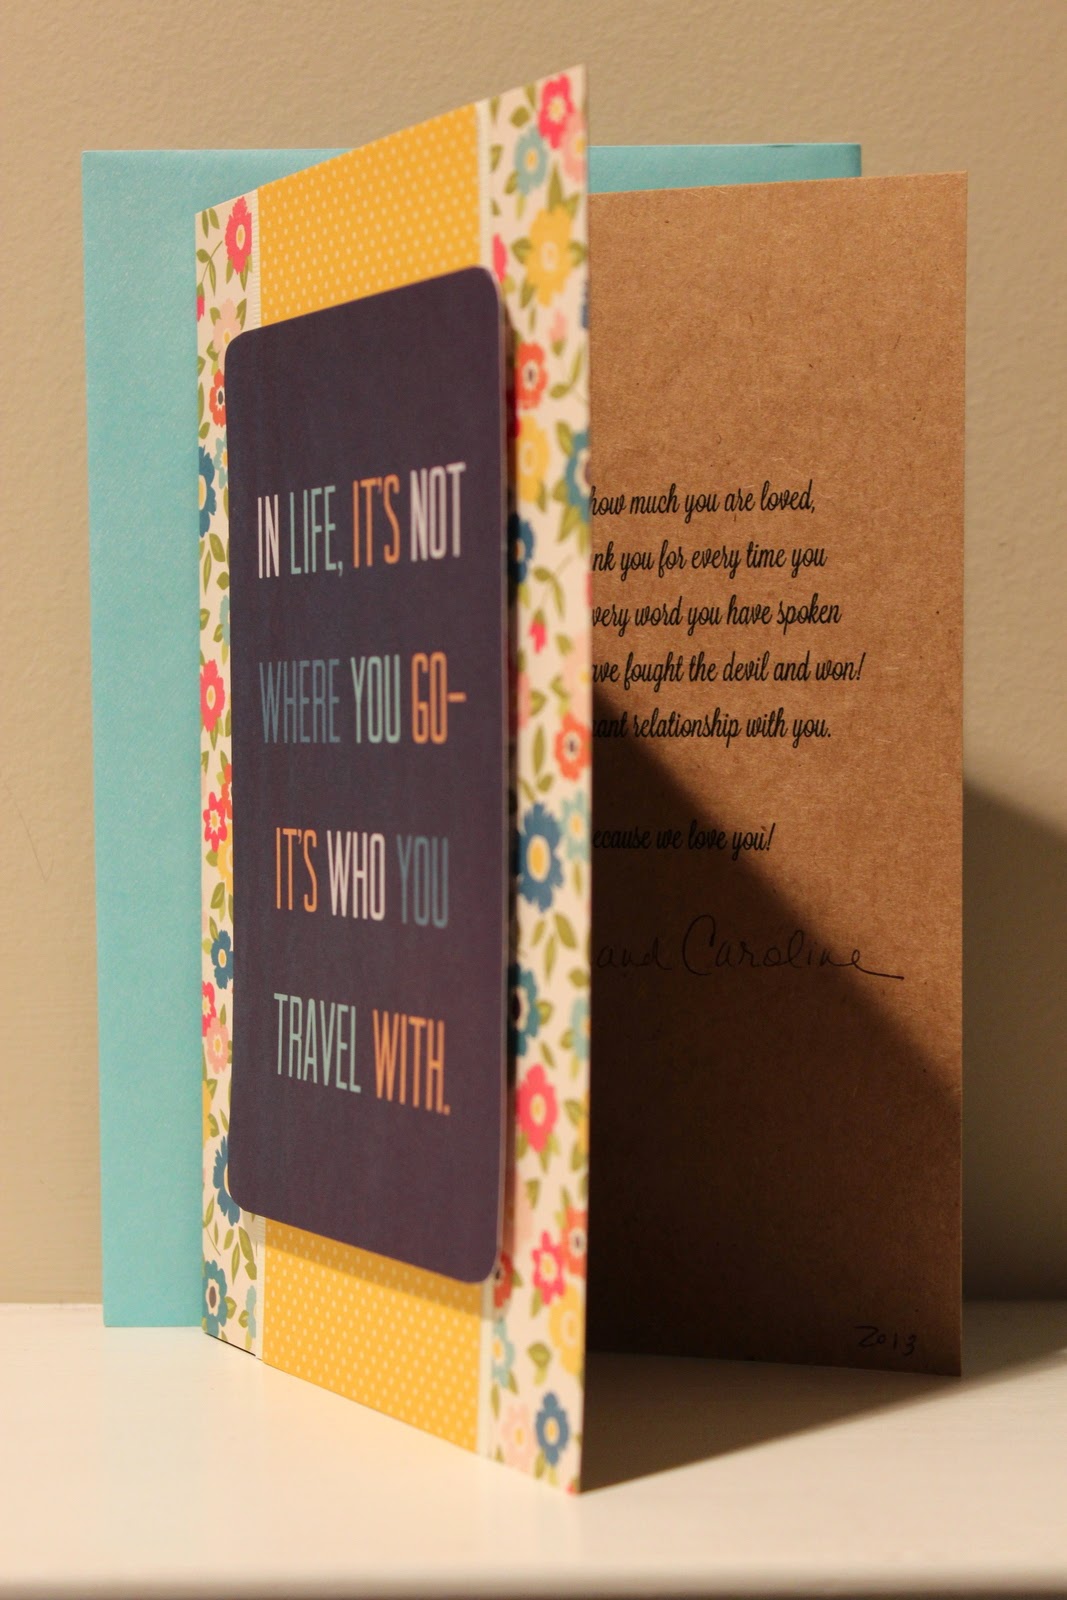 IN LIFE, IT'S NOT
WHERE YOU GO-
IT'S WHO YOU
TRAVEL WITH.
how much you are loved,
nk you for every time you
very word you have spoken
ave fought the devil and won!
relationship with you.
ecause we love you!
and Caroline
2013